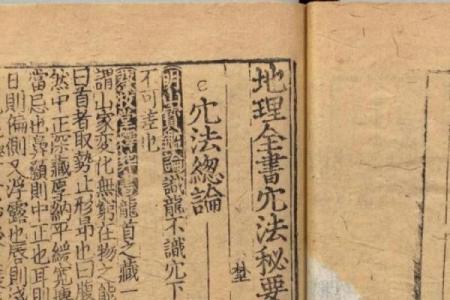 地理全書穴法秘要
穴法總論
明山寶鑑論識龍不識穴下
不可差也
龍首之藏一
謂山家変化無窮在物之龍
曰首者取勢止形昻也曰腹
然中正深藏厚納平緩寬
當忌也鼻顙則中正也耳則
日則偏側又浮露也唇則淺